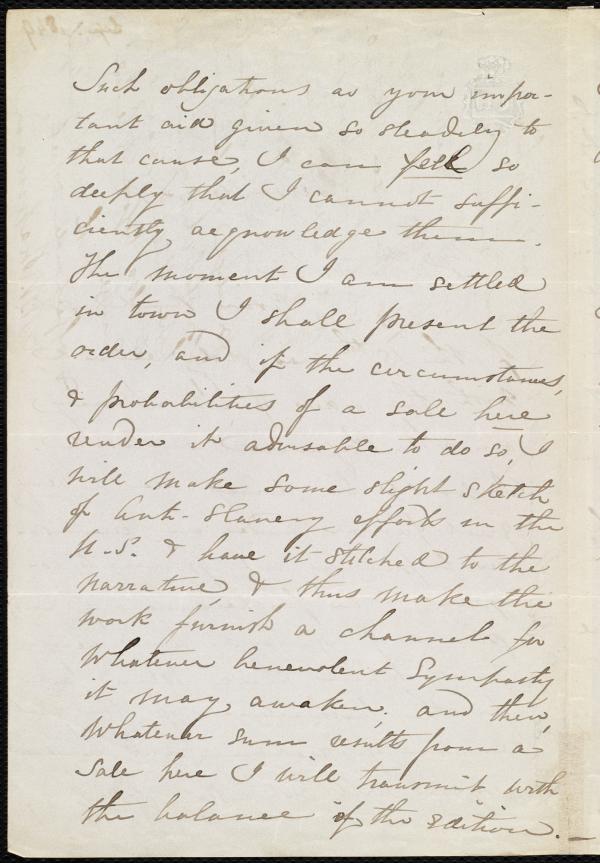 Such obligations as your impor-
tant aid given so steadily to
that cause, I can feel so
deeply that I cannot suffi-
ciently acknowledge them.
The moment I am settled
in town I shall present the
order, and if the circumstances,
& probabilities of a sale here
render it advisable to do so, I
will make some slight sketch
of Anti-slavery efforts in the
U.S. & have it stitched to the
narrative, & thus make the
work furnish a channel for
whatever benevolent sympathy
it may awaken, and then,
whatever sum results from a
sale here I will transmit with
the balance of the edition.